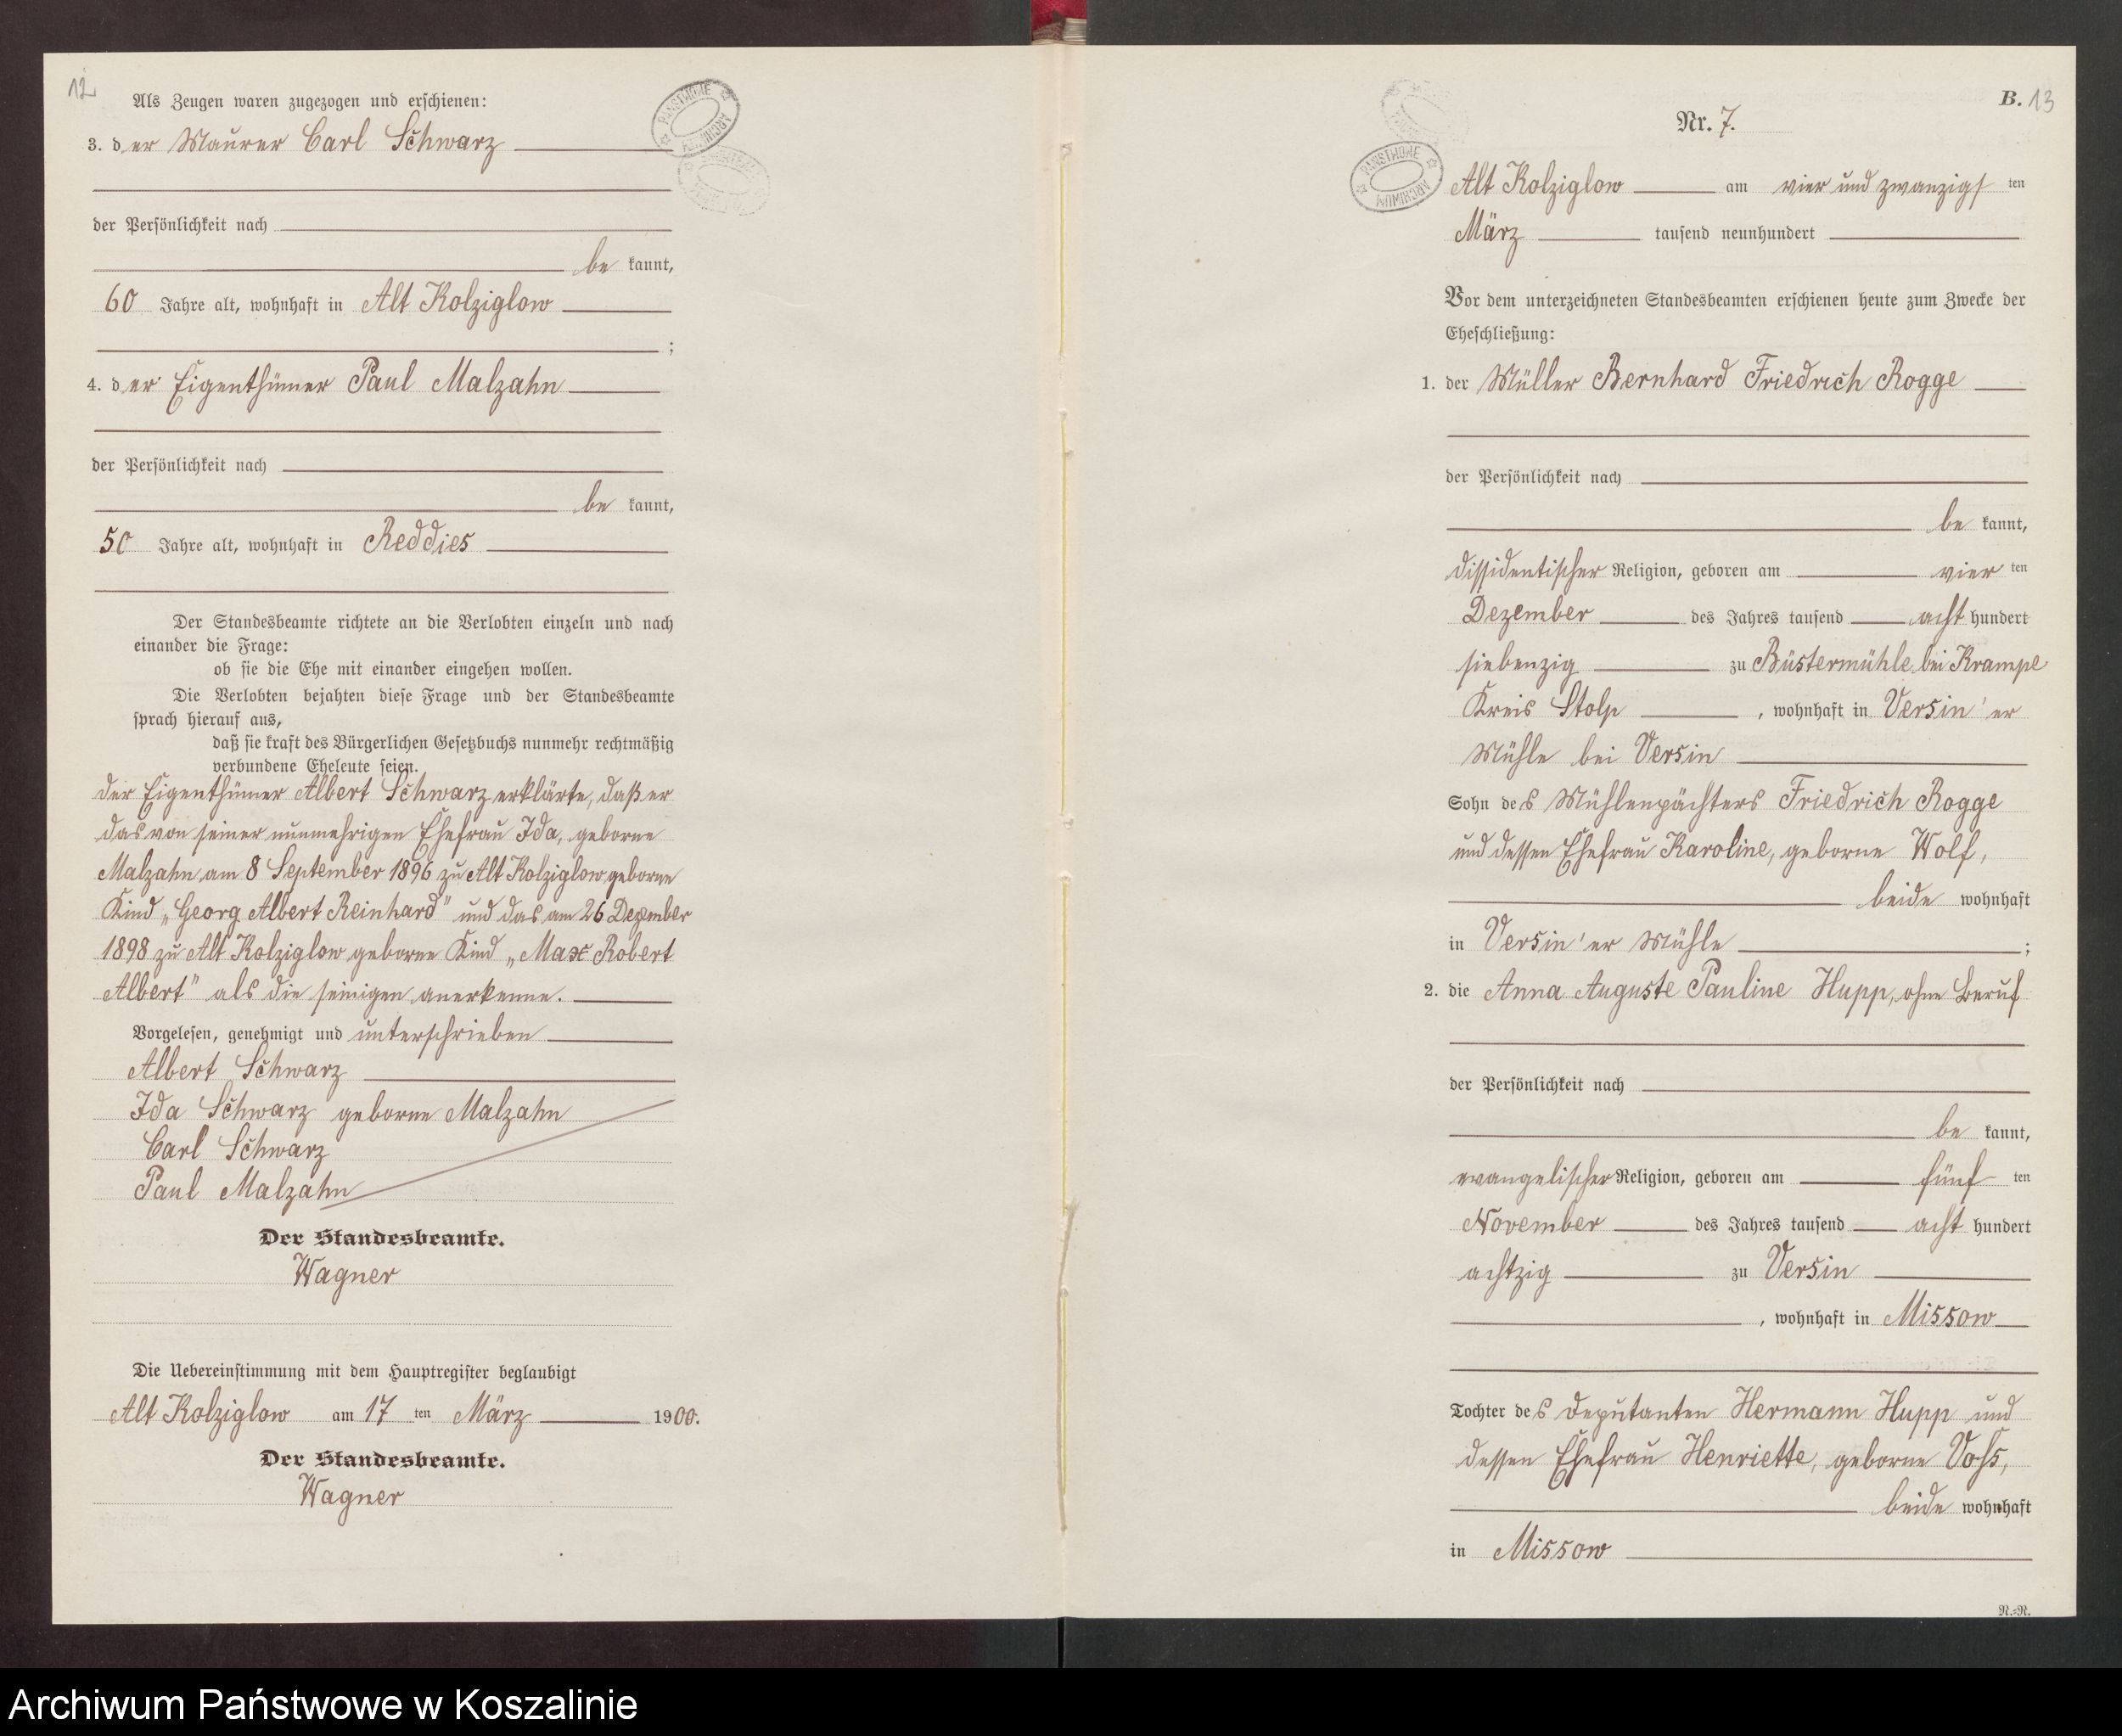 12
Als Zeugen waren zugezogen und erschienen:
3. der Maurer Carl Schwarz
der Persönlichkeit nach
be kannt,
60 Jahre alt, wohnhaft in Alt Kolziglow
;
4. der Eigenthümer Paul Malzahn
der Persönlichkeit nach
be kannt,
50 Jahre alt, wohnhaft in Reddies
Der Standesbeamte richtete an die Verlobten einzeln und nach
einander die Frage:
ob sie die Ehe mit einander eingehen wollen.
Die Verlobten bejahten diese Frage und der Standesbeamte
sprach hierauf aus,
daß sie kraft des Bürgerlichen Gesetzbuchs nunmehr rechtmäßig
verbundene Eheleute seien.
Der Eigenthümer Albert Schwarz erklärte, daß er
das von seiner nunmehrigen Ehefrau Ida, geborne
Malzahn am 8 September 1896 zu Alt Kolziglow geborne
Kind „Georg Albert Reinhard" und das am 26 Dezember
1898 zu Alt Kolziglow geborne Kind „Max Robert
Albert" als die seinigen anerkenne.
Vorgelesen, genehmigt und unterschrieben
Albert Schwarz
Ida Schwarz geborne Malzahn
Carl Schwarz
Paul Malzahn
Der Standesbeamte.
Wagner
Die Uebereinstimmung mit dem Hauptregister beglaubigt
Alt Kolziglow am 17 ten März 1900.
Der Standesbeamte.
Wagner
PAŃSTWOWE ARCHIWUM
B. 13
Nr. 7.
PAŃSTWOWE ARCHIWUM
Alt Kolziglow am vier und zwanzigs ten
März tausend neunhundert
Vor dem unterzeichneten Standesbeamten erschienen heute zum Zwecke der
Eheschließung:
1. der Müller Bernhard Friedrich Rogge
der Persönlichkeit nach
be kannt,
dissidentischer Religion, geboren am vier ten
Dezember des Jahres tausend acht hundert
siebenzig zu Büstermühle bei Krampe
Kreis Stolp, wohnhaft in Versin'er
Mühle bei Versin
Sohn des Mühlenpächters Friedrich Rogge
und dessen Ehefrau Karoline, geborne Wolf,
beide wohnhaft
in Versin'er Mühle ;
2. die Anna Auguste Pauline Hupp, ohne Beruf
der Persönlichkeit nach
be kannt,
evangelischer Religion, geboren am fünf ten
November des Jahres tausend acht hundert
achtzig zu Versin
, wohnhaft in Missow
Tochter des Deputanten Hermann Hupp und
dessen Ehefrau Henriette, geborne Voß,
beide wohnhaft
in Missow
N.-R.
Archiwum Państwowe w Koszalinie